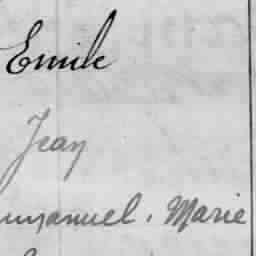 Emile
Jean
mmanuel, Marie